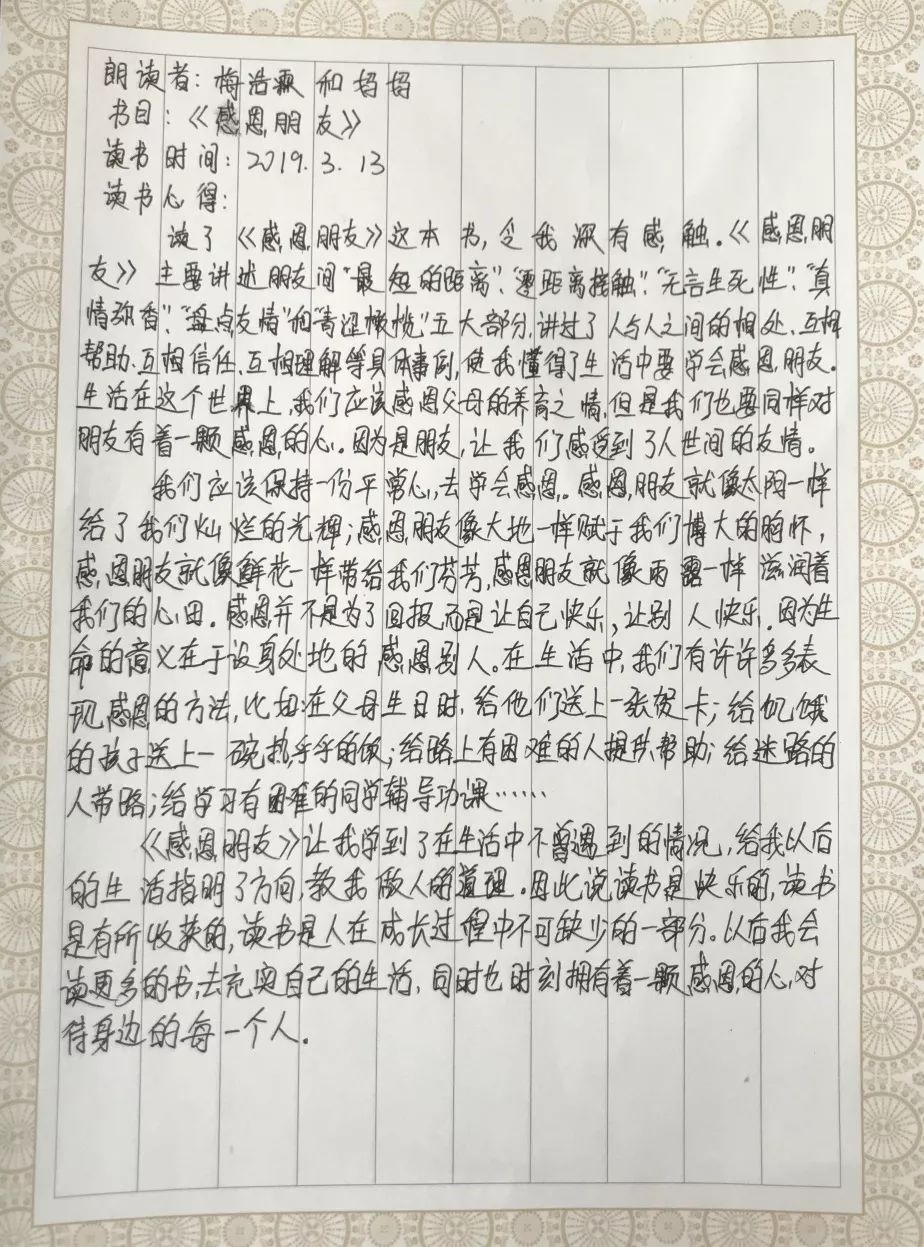 朗读者：梅浩霖和妈妈
书目：《感恩朋友》
读书时间：2019.3.13
读书心得：
读了《感恩朋友》这本书，令我深有感触。《感恩朋
友》主要讲述朋友间“最短的距离”、“零距离接触”、“无言生死性”、“真
情弥香”、“盘点友情”和“青涩橄榄”五大部分，讲过了人与人之间的相处、互相
帮助、互相信任、互相理解等具体事例，使我懂得了生活中要学会感恩朋友。
生活在这个世界上，我们应该感恩父母的养育之情，但是我们也要同样对
朋友有着一颗感恩的心。因为是朋友，让我们感受到了人世间的友情。
我们应该保持一份平常心，去学会感恩。感恩朋友就像太阳一样
给了我们灿烂的光辉；感恩朋友像大地一样赋于我们博大的胸怀，
感恩朋友就像鲜花一样带给我们芬芳，感恩朋友就像雨露一样滋润着
我们的心田。感恩并不是为了回报，而是让自己快乐，让别人快乐。因为生
命的意义在于设身处地的感恩别人。在生活中，我们有许许多多表
现感恩的方法，比如在父母生日时，给他们送上一张贺卡；给饥饿
的孩子送上一碗热乎乎的饭；给路上有困难的人提供帮助；给迷路的
人带路；给学习有困难的同学辅导功课……
《感恩朋友》让我学到了在生活中不曾遇到的情况，给我以后
的生活指明了方向，教我做人的道理。因此说读书是快乐的，读书
是有所收获的，读书是人在成长过程中不可缺少的一部分。以后我会
读更多的书，去充实自己的生活，同时也时刻拥有着一颗感恩的心，对
待身边的每一个人。